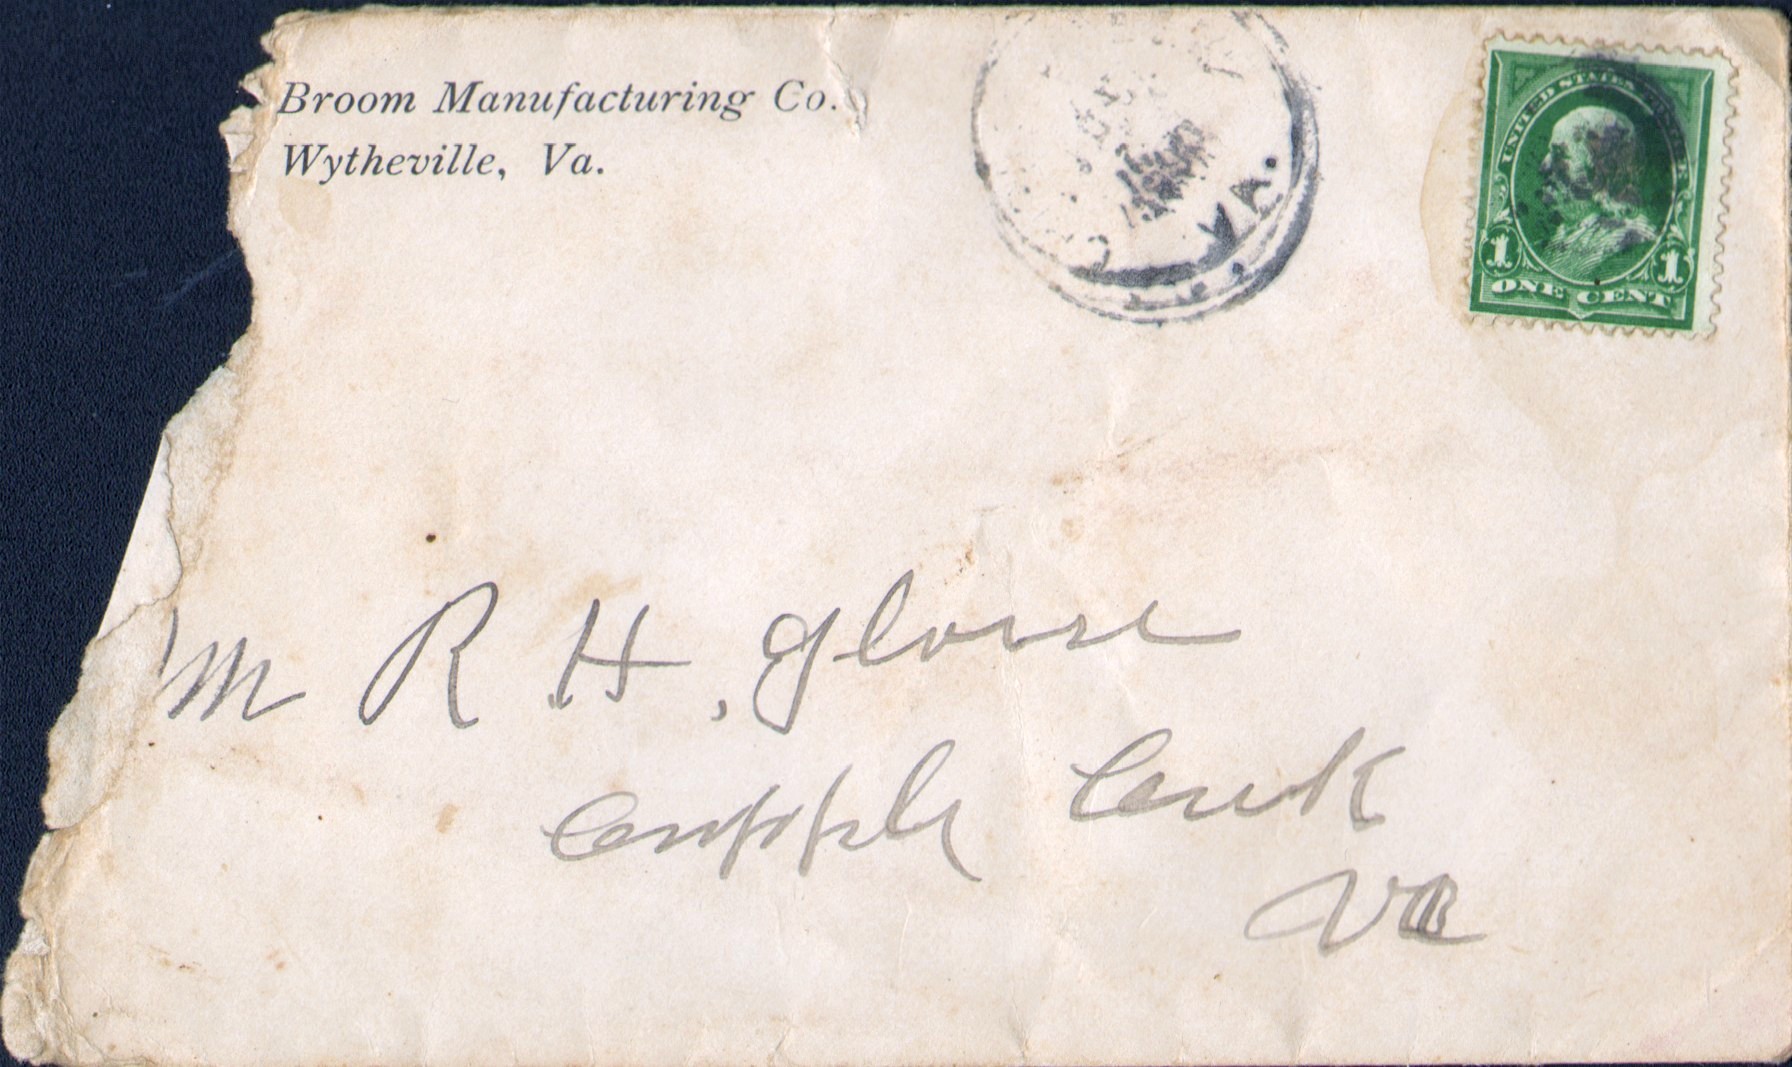 Broom Manufacturing Co.
Wytheville, Va.
VA.
UNITED STATES
1 1
ONE CENT
M R H, Glosse
Cripple Creek
Va